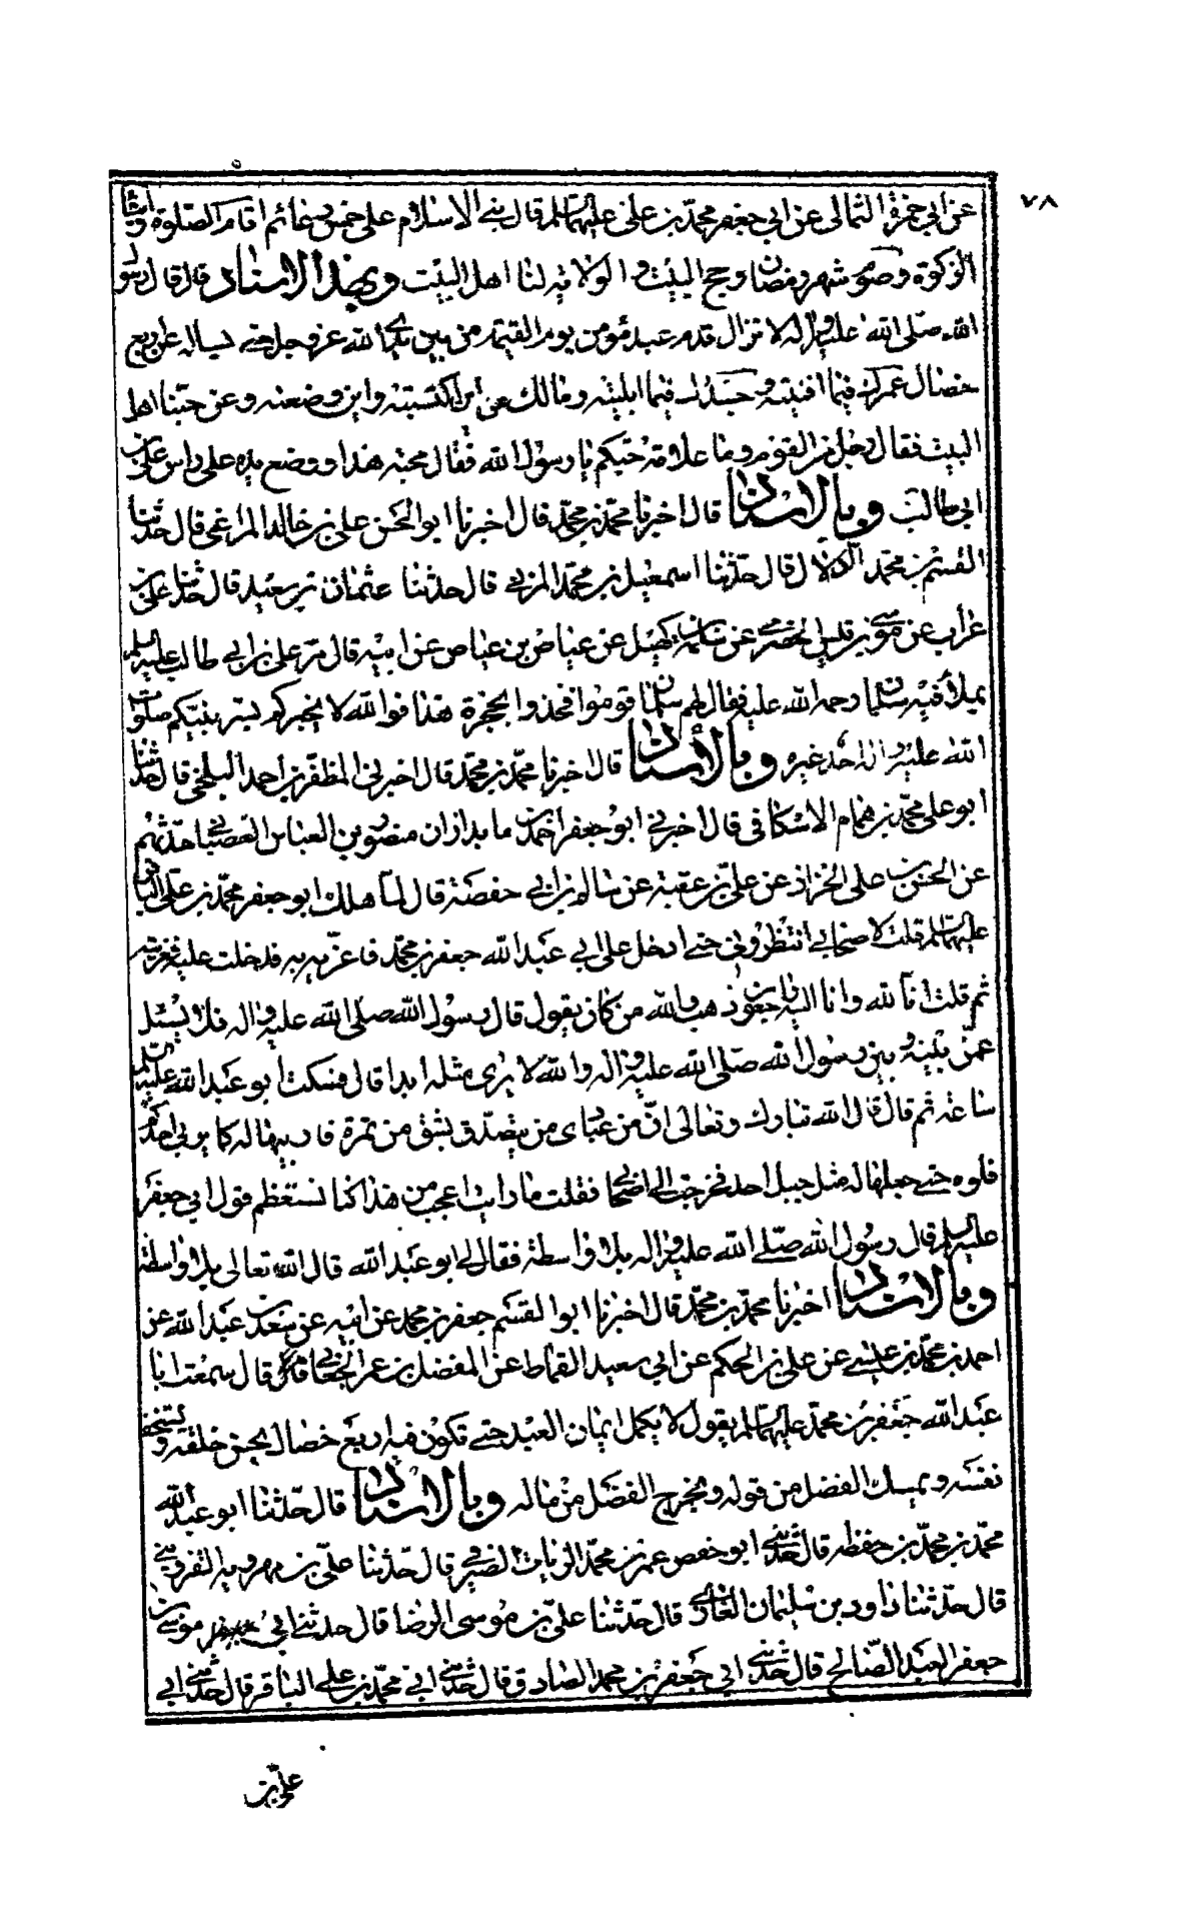 ٧٨
عن ابي حمزة الثمالى عن ابي جعفر محمد بن على عليهما السلم قال بنى الاسلام على خمس دعائم اقام الصلوة وايتاء
الزكوة وصوم شهر رمضان وحج البيت والولاية لنا اهل البيت وبهذا الاسناد قال قال رسول
الله صلى الله عليه واله لا تزال قدم عبد مؤمن يوم القيمة من بين يدى الله عز وجل حتى يساله عن اربع
خصال عمرك فيما افنيته وجسدك فيما ابليته ومالك من اين اكتسبته واين وضعته وعن حبنا اهل
البيت فقال رجل من القوم وما علامة حبكم يا رسول الله فقال محبة هذا ووضع يده على راس على بن
ابي طالب وبالاسناد قال اخبرنا محمد بن محمد قال اخبرنا ابو الحسن على بن خالد المراغى قال حدثنا
القسم بن محمد الدلال قال حدثنا اسمعيل بن محمد المزنى قال حدثنا عثمان بن سعيد قال حدثنا على بن
غراب عن موسى بن قيس الحضرمى عن سلمة بن كهيل عن عياض بن عياض عن ابيه قال مر على بن ابى طالب عليه السلم
بملأ فيه سلمان رحمة الله عليه فقال لهم سلمان قوموا فخذوا بحجزة هذا فوالله لا يخبركم بسر نبيكم صلوات
الله عليه واله احد غيره وبالأسناد قال اخبرنا محمد بن محمد قال اخبرنى المظفر بن احمد البلخى قال حدثنا
ابو على محمد بن همام الاسكافى قال اخبرنى ابو جعفر احمد بن مابداذ ان منصور بن العباس القصبانى حدثهم
عن الحسن بن على الخزاز عن على بن عقبة عن سالم بن ابى حفصة قال لما هلك ابو جعفر محمد بن على الباقر
عليهما السلم قلت لاصحابى انتظرونى حتى ادخل على ابى عبد الله جعفر بن محمد فاعزيه به فدخلت عليه فعزيته
ثم قلت انا لله وانا اليه راجعون ذهب والله من كان يقول قال رسول الله صلى الله عليه واله فلا يسئل
عمن بينه وبين رسول الله صلى الله عليه واله والله لا يرى مثله ابدا قال فسكت ابو عبد الله عليه السلم
ساعة ثم قال قال الله تبارك وتعالى ان من عبادى من يتصدق بشق من تمرة فاربيها له كما يربى احدكم
فلوه حتى جعلها له مثل جبل احد فخرجت الى اصحابى فقلت ما رايت اعجب من هذا كنا نستعظم قول ابي جعفر
عليه السلم قال رسول الله صلى الله عليه واله بلا واسطة فقال لى ابو عبد الله قال الله تعالى بلا واسطة
وبالاسناد اخبرنا محمد بن محمد قال اخبرنا ابو القسم جعفر بن محمد عن ابيه عن سعد بن عبد الله عن
احمد بن محمد بن عيسى عن على بن الحكم عن ابي سعيد القماط عن المفضل بن عمر الجعفى قال سمعت ابا
عبد الله جعفر بن محمد عليهما السلم يقول لا يكمل ايمان العبد حتى تكون فيه اربع خصال يحسن خلقه ويستخف
نفسه ويمسك الفضل من قوله ويخرج الفضل من ماله وبالاسناد قال حدثنا ابو عبد الله
محمد بن محمد بن حفظه قال حدثنى ابو حفص عمر بن محمد الزيات الصيرفى قال حدثنا على بن مهرويه القزوينى
قال حدثنا داود بن سليمان الغازى قال حدثنا على بن موسى الرضا قال حدثنى ابى موسى بن
جعفر العبد الصالح قال حدثنى ابي جعفر بن محمد الصادق قال حدثنى ابى محمد بن على الباقر قال حدثنى ابى
على بن